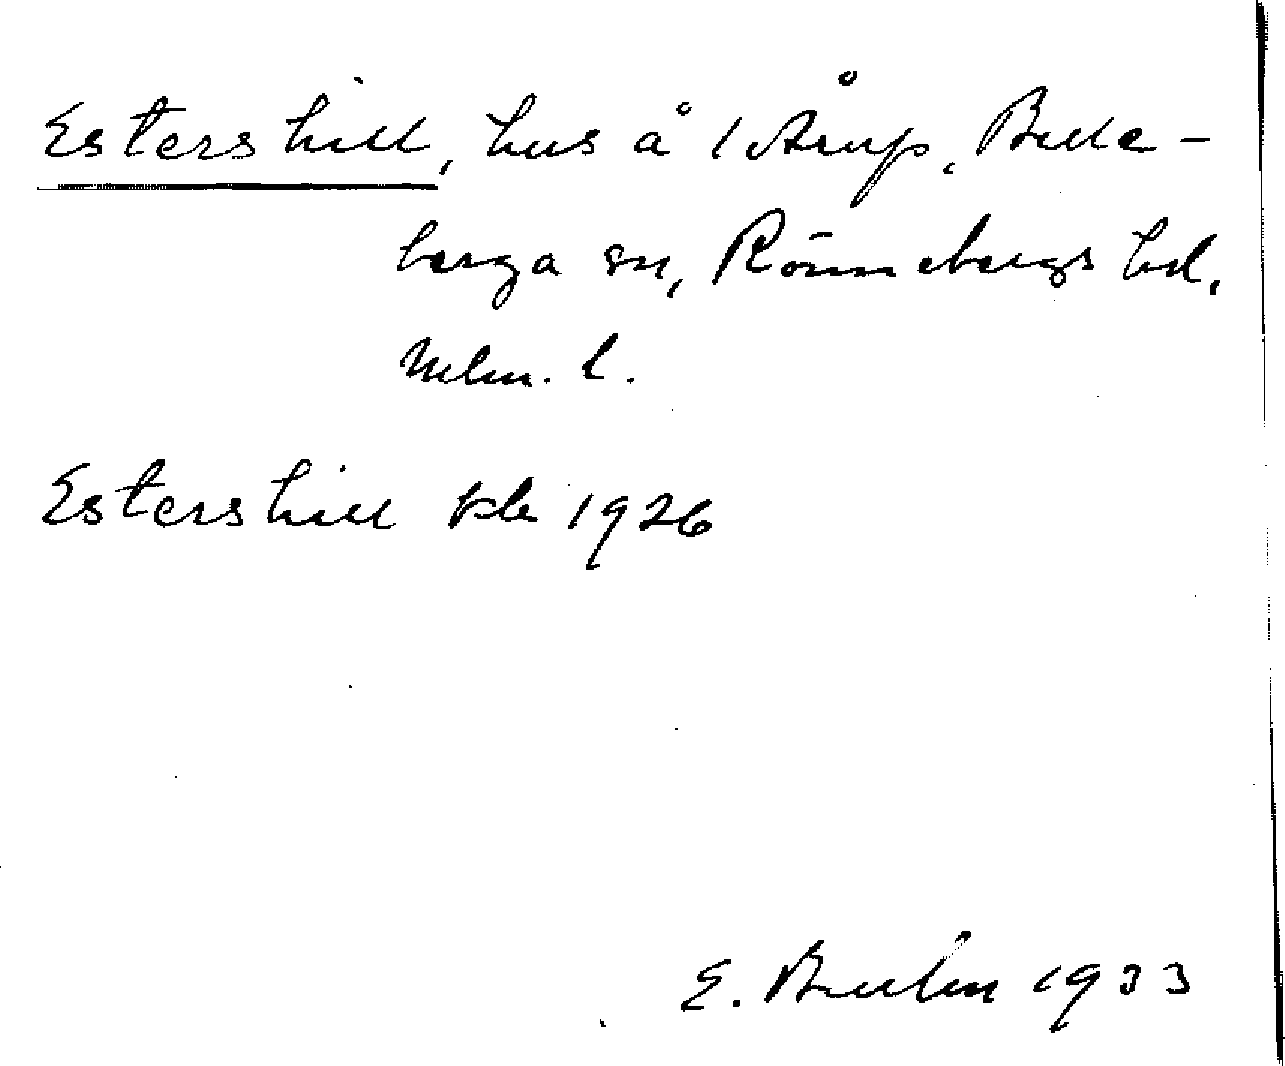 Estershill, hus å 1 Årup, Bille-
berga sn, Rönnebergs hd,
Mlm. l.
Estershill kb 1926
E. 1933